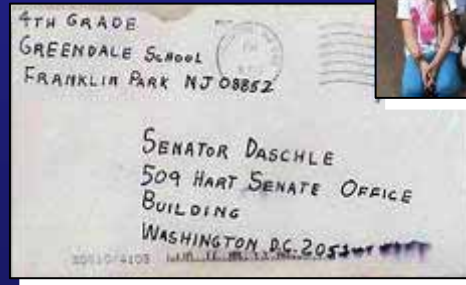 4TH GRADE
GREENDALE SCHOOL
FRANKLIN PARK NJ 08852
SENATOR DASCHLE
509 HART SENATE OFFICE
BUILDING
WASHINGTON D.C. 205
20510/4103